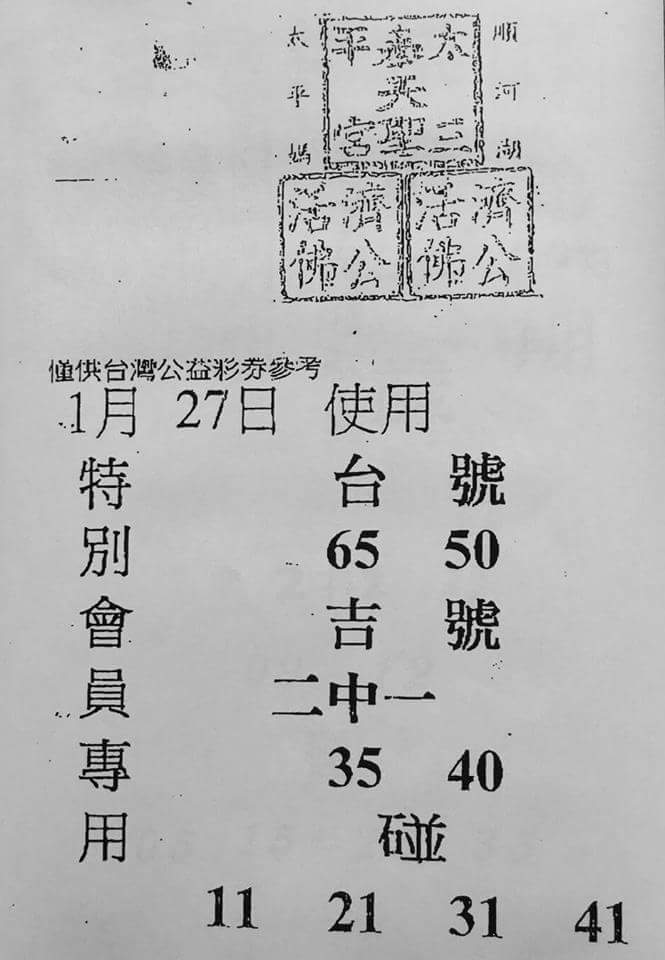 順河湖
太平嘉天三聖宮
太平媽
濟公活佛
濟公活佛
僅供台灣公益彩券參考
1月 27日 使用
特別會員專用
台 號
65 50
吉 號
二中一
35 40
碰
11 21 31 41